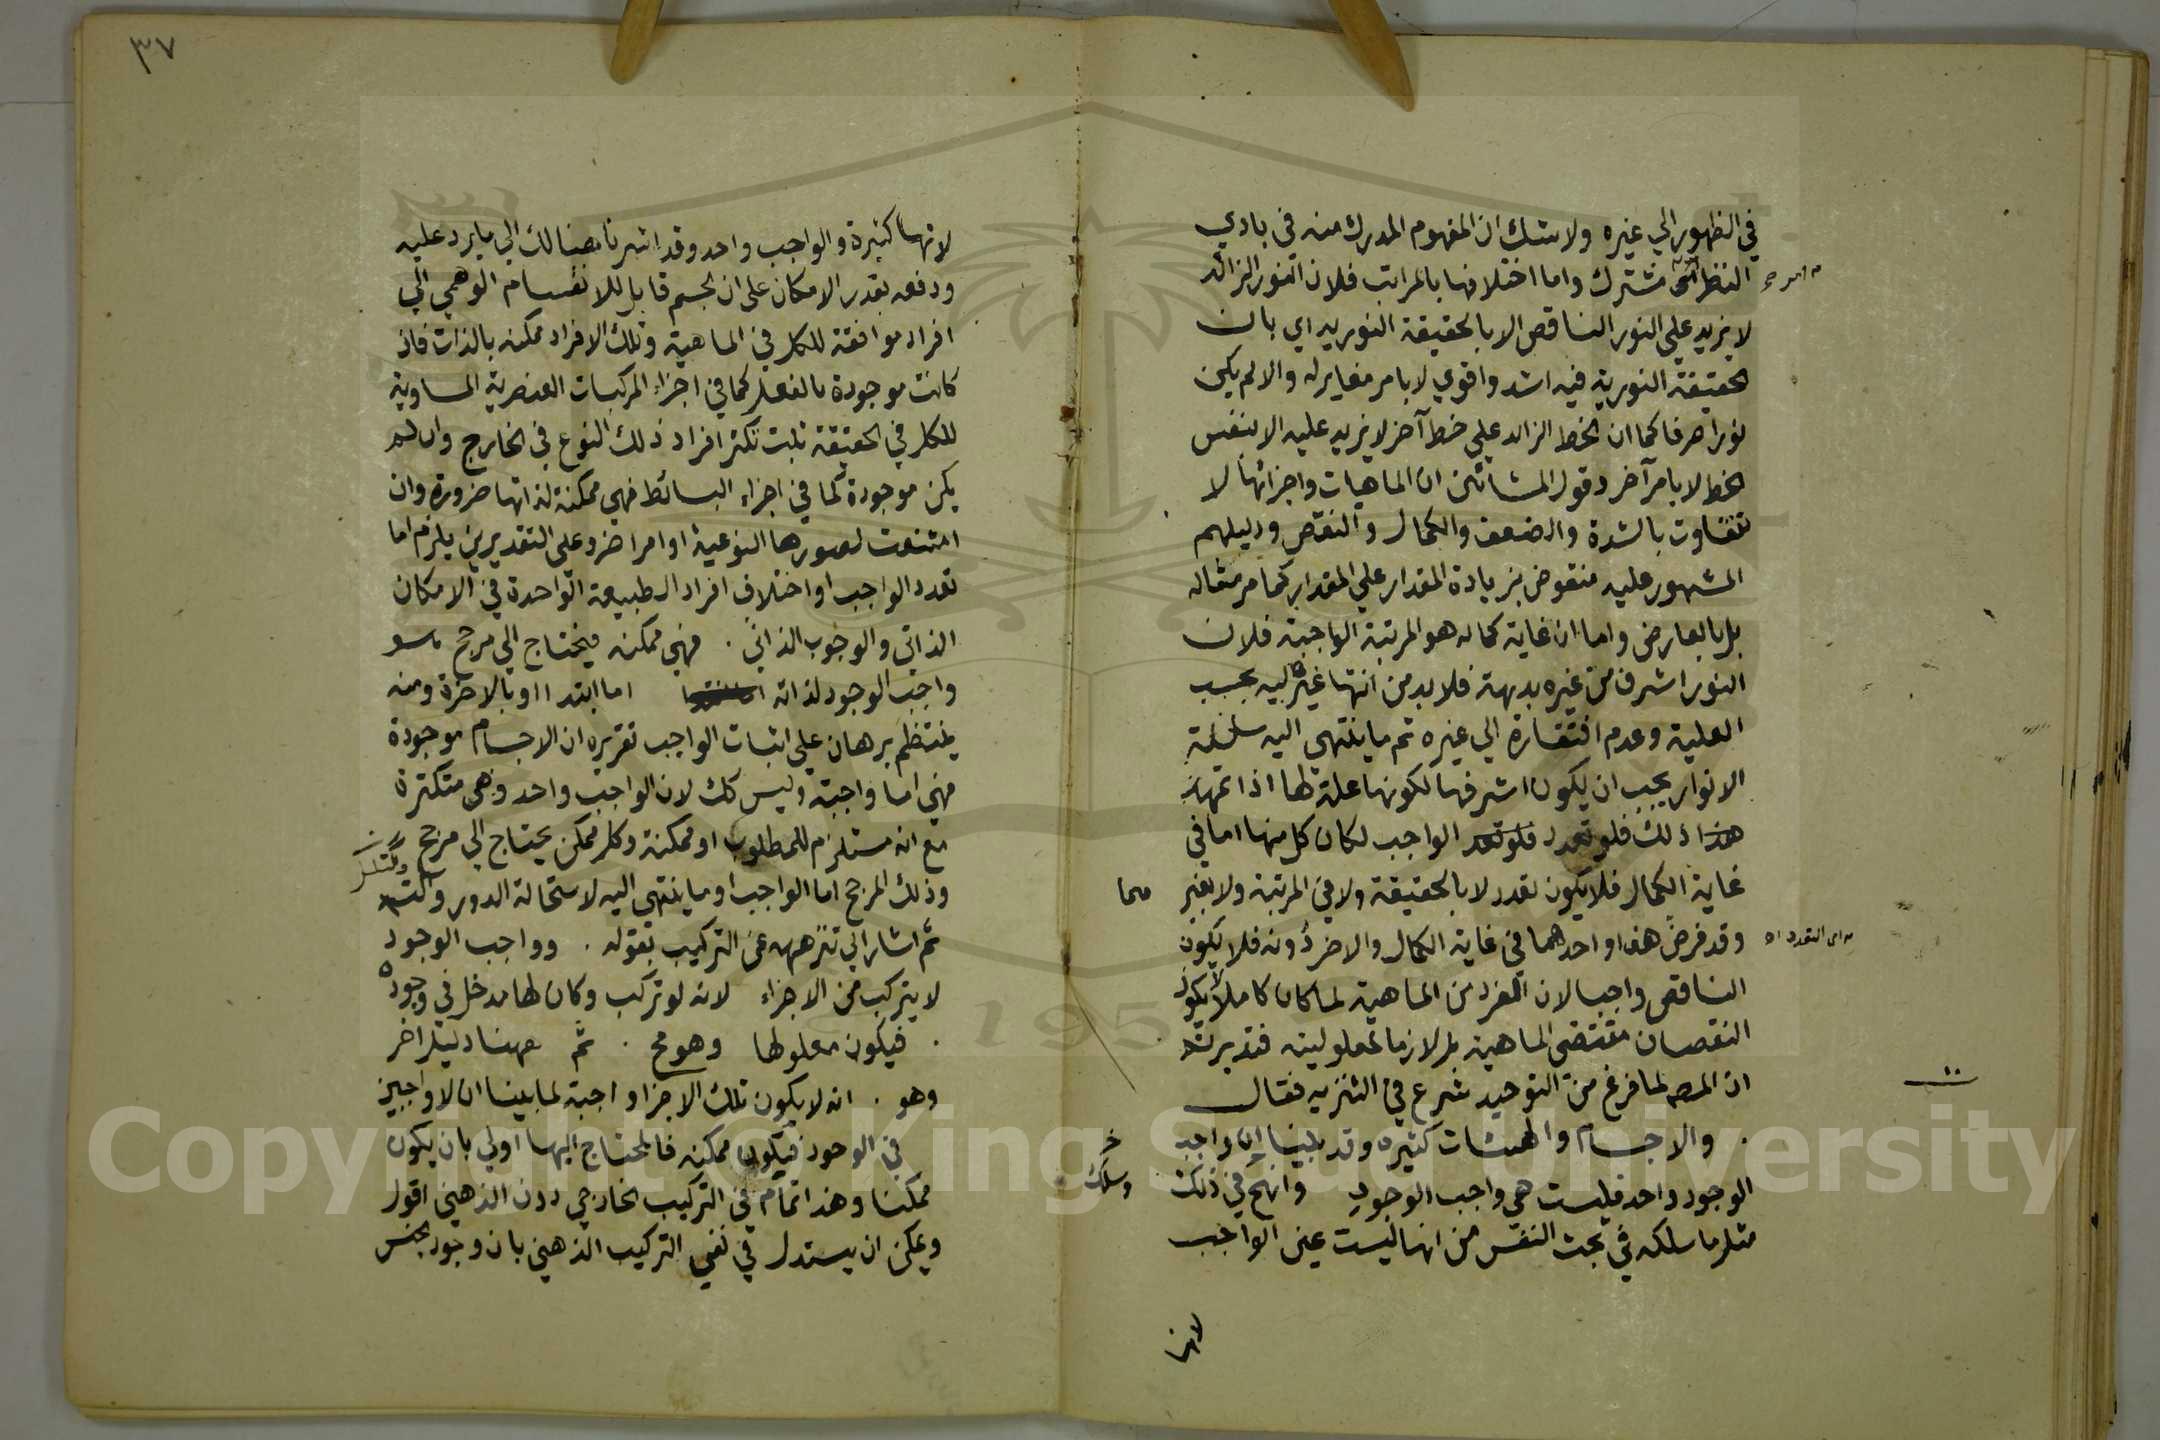 في الظهور الي غيره ولا شك ان المفهوم المدرك منه في بادي
النظر مشترك واما اختلافها بالمراتب فلان النور الزائد
لا يزيد علي النور الناقص الا بالحقيقة النوريه اي بان
الحقيقة النورية فيه اشد واقوي لا بامر مغاير له والا لم يكن
نورا صرفا كما ان الخط الزائد علي خط آخر لا يزيد عليه الا بنفس
الخط لا بامر آخر وقول المشائين ان الماهيات واجزائها لا
تتفاوت بالشدة والضعف والكمال والنقص ودليلهم
المشهور عليه منقوض بزيادة المقدار علي المقدار كما مر مثاله
بل بالعارض واما ان غاية كماله هو المرتبة الواجبة فلان
النور اشرف من غيره بديهة فلا بد من انتهاء غيره اليه بحسب
العلية وعدم افتقاره الي غيره ثم ما ينتهي اليه سلسلة
الانوار يجب ان يكون اشرفها لكونها علة لها اذا تمهد
هذا ذلك فلو تعدد الواجب لكان كل منها اما في
غاية الكمال فلا يكون تعدد لا بالحقيقة ولا في المرتبة ولا بغير
هما
وقد فرض هف او احدهما في غاية الكمال والاخر دونه فلا يكون
اي التعدد
الناقص واجبا لان الفرد من الماهية لما كان كاملا لا يكون
النقصان مقتضى الماهية بل لازما لمعلوليته فتدبر ثم
ان المص لما فرغ من التوحيد شرع في التنزيه فقال
١٠
والاجسام والهيئات كثيره وقد بينا ان واجب
الوجود واحد فليست هي واجب الوجود وانهج في ذلك
وسلك
مثل ما سلكه في بحث النفس من انها ليست عين الواجب
لانها
٣٧
لانها كثيرة والواجب واحد وقد اشرنا هنالك الي ما يرد عليه
ودفعه بقدر الامكان على ان الجسم قابل للانقسام الوهمي الي
افراد موافقة للكل في الماهية وتلك الافراد ممكنه بالذات فان
كانت موجودة بالفعل كما في اجزاء المركبات العنصرية المساوية
للكل في الحقيقة ثبت تكثر افراد ذلك النوع في الخارج وان لم
يكن موجودة كما في اجزاء البسائط فهي ممكنة لذاتها ضرورة وان
امتنعت لصورها النوعية او امر اخر وعلى التقديرين يلزم اما
تعدد الواجب او اختلاف افراد الطبيعة الواحدة في الامكان
الذاتي والوجوب الذاتي . فهي ممكنه فيحتاج الي مرجح هو
واجب الوجود لذاته اما ابتداء او بالاخرة ومنه
ينتظم برهان علي اثبات الواجب تقريره ان الاجسام موجودة
فهي اما واجبة وليس كك لان الواجب واحد وهي متكثرة
مع انه مستلزم للمطلوب او ممكنة وكل ممكن يحتاج الي مرجح
وذلك المرجح اما الواجب او ما ينتهي اليه لاستحالة الدور والتسلسل
ثم اشار الي تنزهه عن التركيب بقوله . وواجب الوجود
لا يتركب من الاجزاء لانه لو تركب وكان لها مدخل في وجوده
. فيكون معلولها وهو مح . ثم ههنا دليل اخر
وهو . انه لا يكون تلك الاجزاء واجبة لما بينا ان لا واجبين
في الوجود فيكون ممكنه فالمحتاج اليها اولي بان يكون
ممكنا وهذا تمام في التركيب الخارجي دون الذهني اقول
ويمكن ان يستدل في نفي التركيب الذهني بان وجود الجنس
Copyright © King Saud University
195